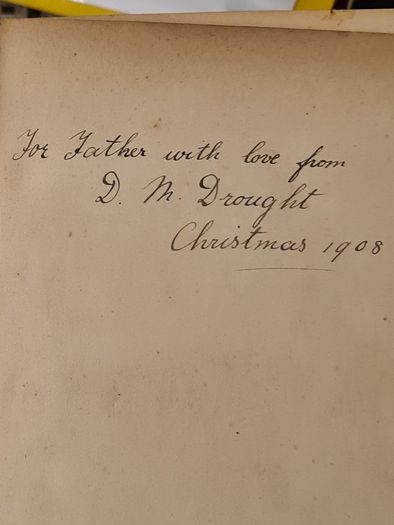 For Father with love from
D. M. Drought
Christmas 1908